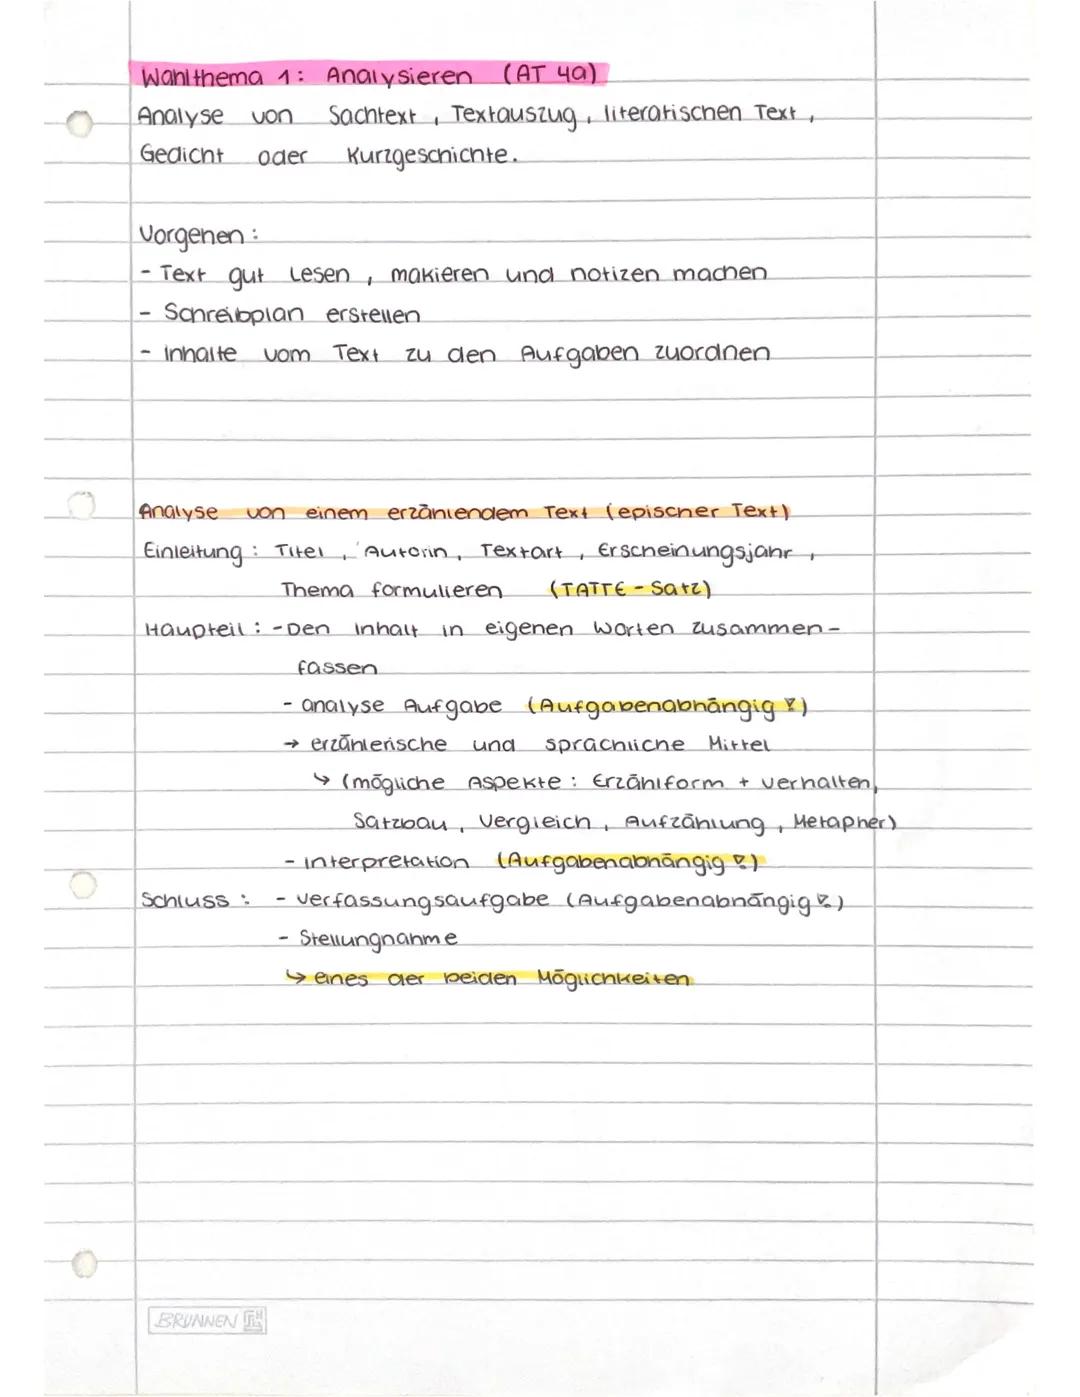 Wahlthema 1: Analysieren (AT 4a)
Analyse von Sachtext, Textauszug, literarischen Text,
Gedicht oder Kurzgeschichte.
Vorgehen:
- Text gut Lesen, makieren und notizen machen
- Schreibplan erstellen
- Inhalte vom Text zu den Aufgaben zuordnen
Analyse von einem erzählendem Text (epischer Text)
Einleitung: Titel, Autorin, Textart, Erscheinungsjahr,
Thema formulieren (TATTE-Satz)
Haupteil: -Den Inhalt in eigenen Worten zusammen-
fassen
- analyse Aufgabe (Aufgabenabhängig!)
→ erzählerische und sprachliche Mittel
↳ (mögliche Aspekte: Erzählform + verhalten,
Satzbau, Vergleich, Aufzählung, Metapher)
- Interpretation (Aufgabenabhängig!)
Schluss: - Verfassungsaufgabe (Aufgabenabhängig!)
- Stellungnahme
↳ eines der beiden Möglichkeiten
BRUNNEN